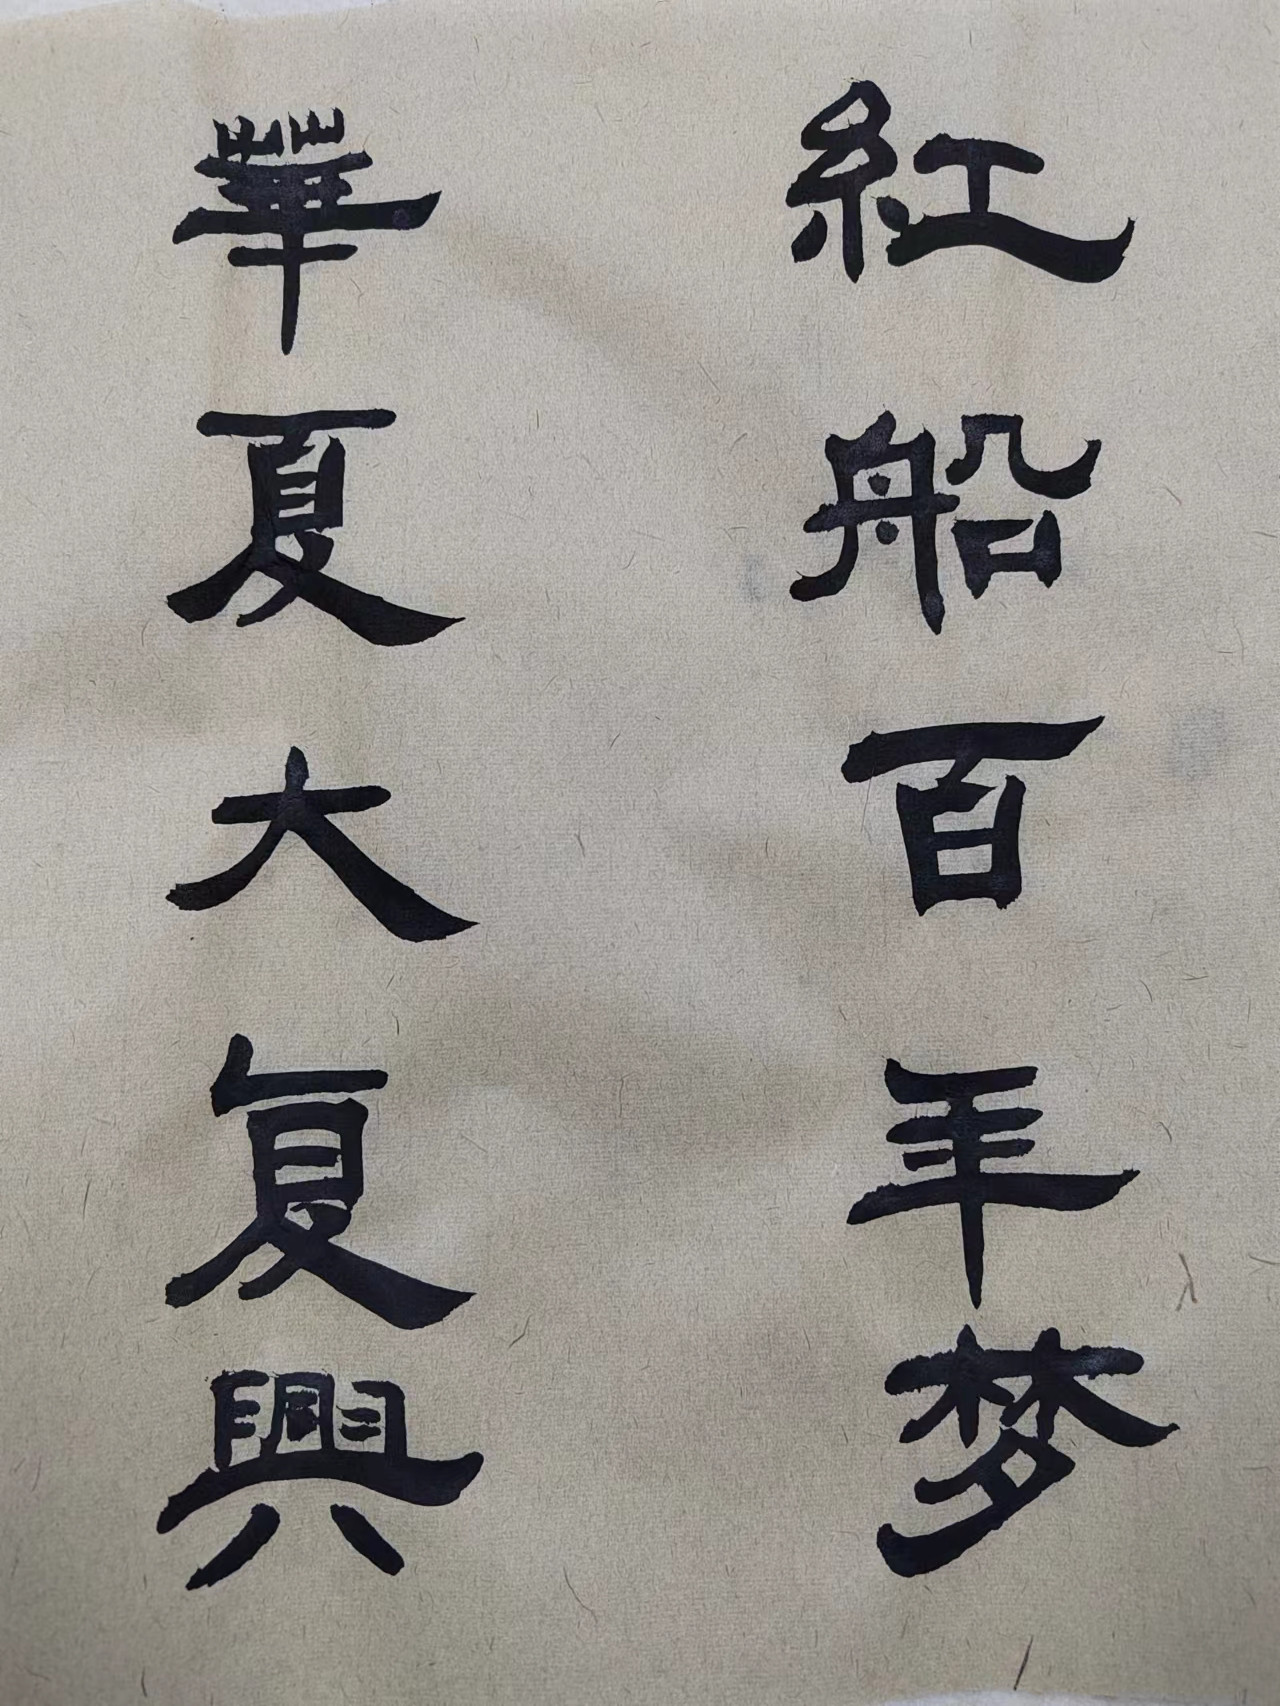 紅船百年梦
華夏大复興